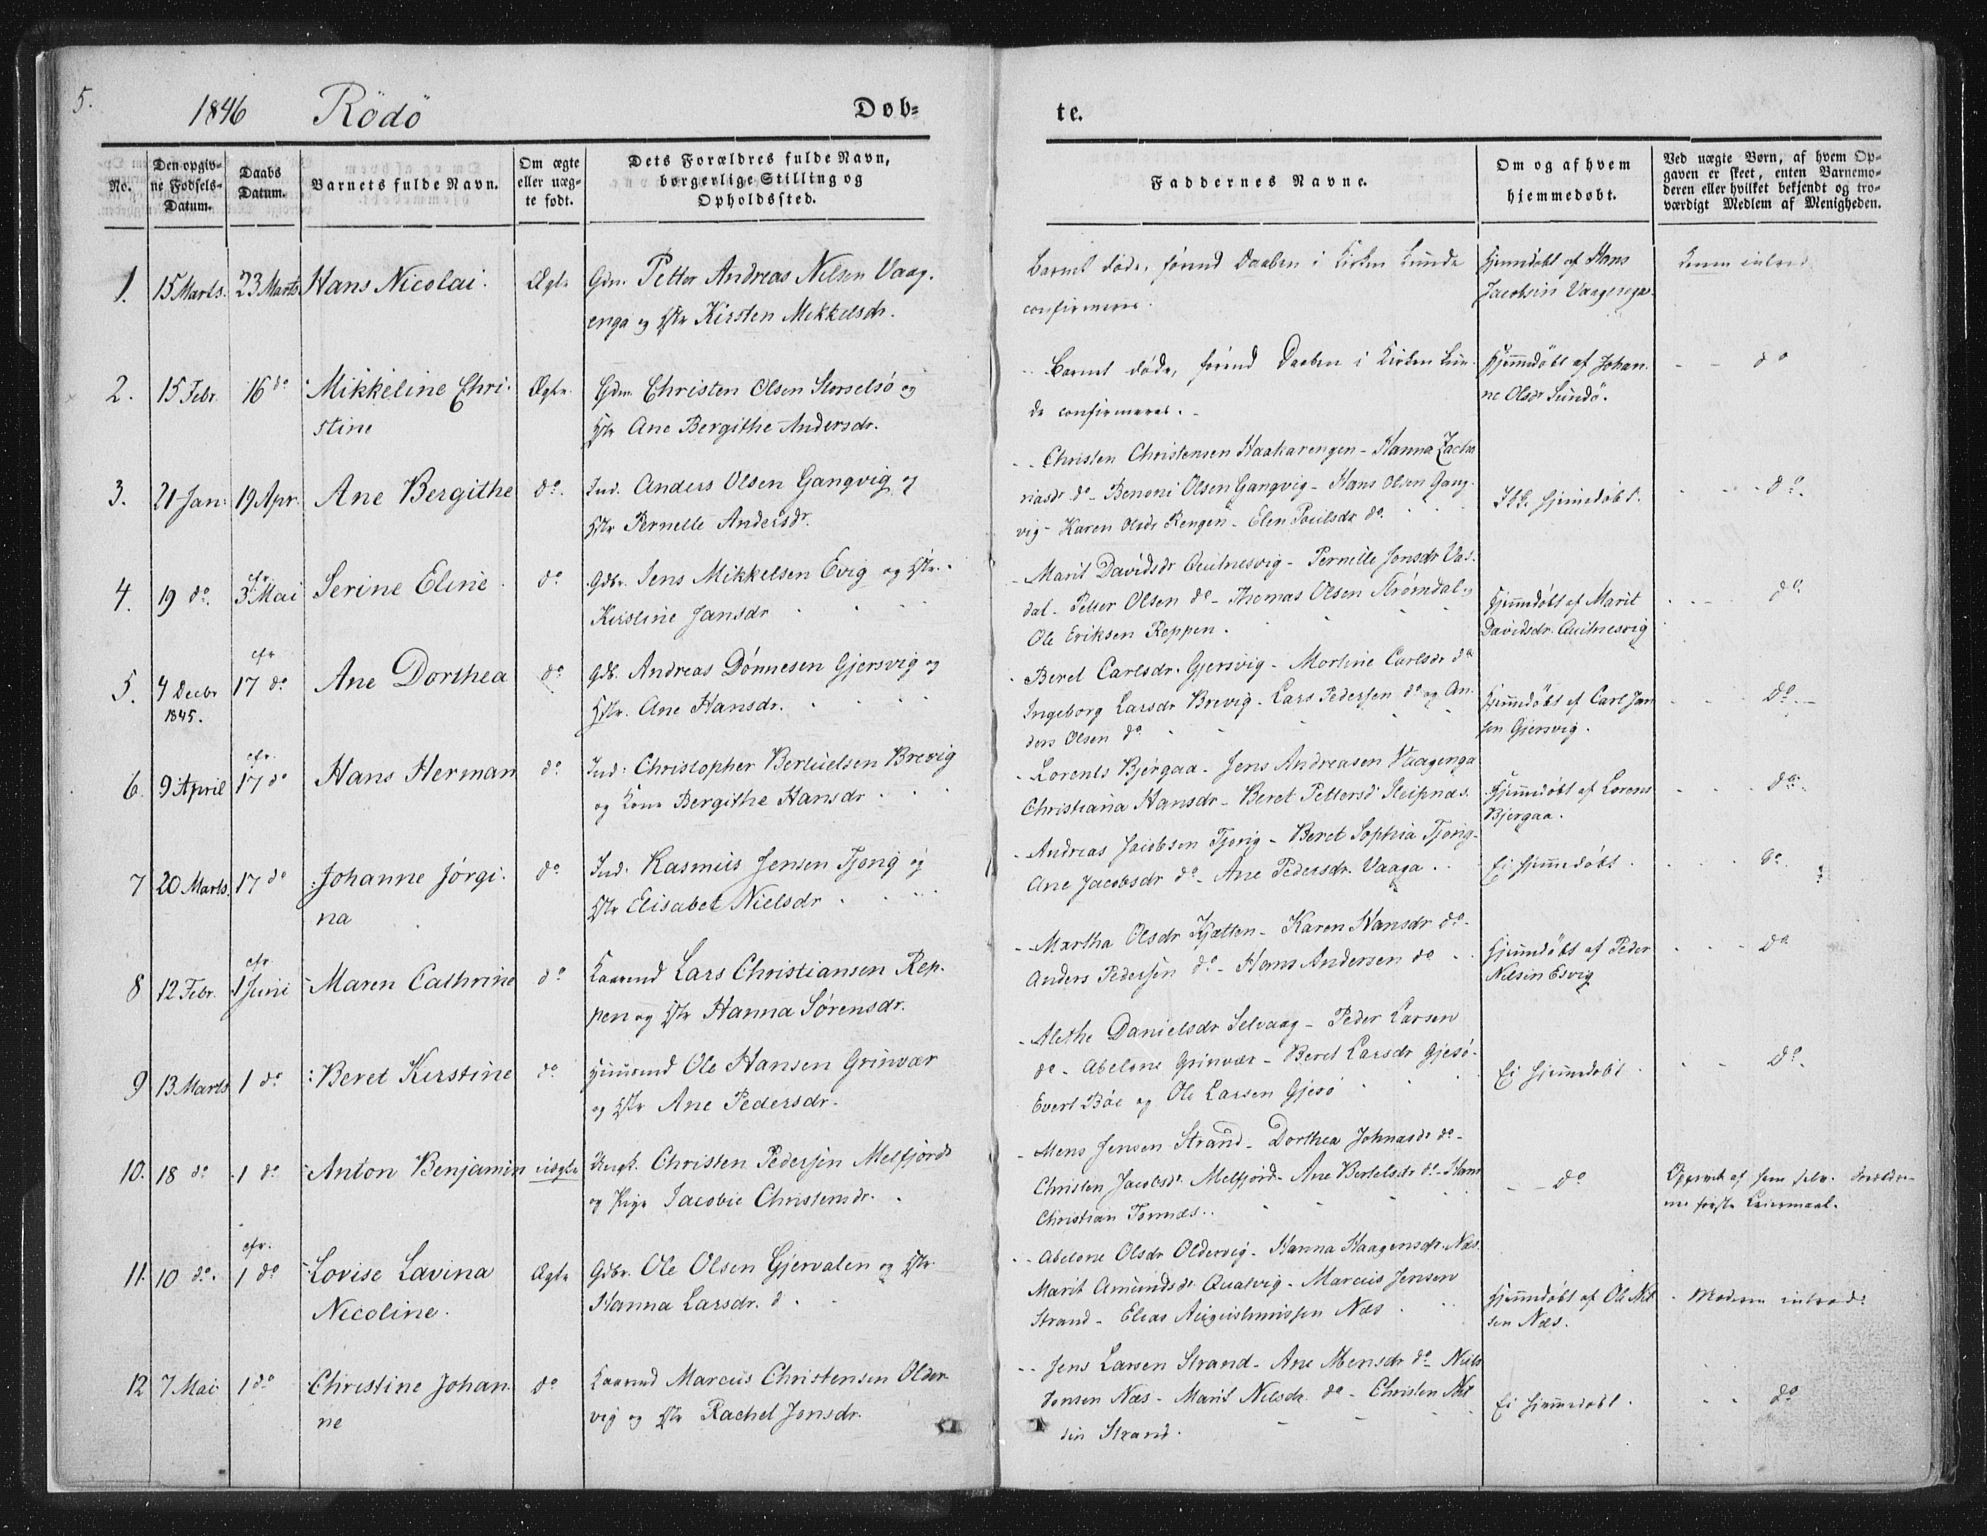 5.
1846 Rödö
Døb-
te.
No.
Den opgiv-
ne Fødsels-
Datum.
Daabs
Datum.
Barnets fulde Navn.
Om ægte
eller uæg-
te født.
Dets Forældres fulde Navn,
borgerlige Stilling og
Opholdssted.
Faddernes Navne.
Om og af hvem
hjemmedøbt.
Ved uægte Børn, af hvem Op-
gaven er skeet, enten Barnemo-
deren eller hvilket bekjendt og tro-
værdigt Medlem af Menigheden.
1. 15 Marts. 23 Marts Hans Nicolai. Ægte
Gdm. Petter Andreas Nelsen Vaag.
enga og Hstr Kirsten Mikkelsdr.
Barnet døde, førend Daaben i Kirken kunde
confirmeres.
Hjemdøbt af Hans
Jacobsen Vaagenga
2. 15 Febr. 16 do Mikkeline Chri-
stine
Ægte.
Gdm. Christen Olsen Storselsö og
Hstr Ane Bergithe Andersdr.
Barnet døde, førend Daaben i Kirken kun-
de confirmeres.
Hjemdøbt af Johan-
ne Olsdr Sundö.
do
3. 21 Jan: 19 Apr. Ane Bergithe do.
Ind. Anders Olsen Gangvig og
Hstr Pernelle Andersdr.
Christen Christensen Haakarengen - Hanna Zacha
riasdr do - Benoni Olsen Gangvig - Hans Olsen Gang-
vig - Karen Olsdr Rengen - Elen Poulsdr do.
Ikke hjemdøbt.
do.
4. 19 do. cfr 3 Mai Serine Eline. do
Gdbr. Jens Mikkelsen Evig og Hstr.
Kirstine Jansdr
Marit Davidsdr Quitnesvig - Pernille Jonsdr Vas-
dal - Petter Olsen do - Thomas Olsen Strömdal og
Ole Eriksen Reppen.
Hjemdøbt af Marit
Davidsdr. Quitnesvig
do
5. 4 Decbr 1845. cfr 17 do Ane Dorthea do
Gdb. Andreas Dönnesen Gjersvig og
Hstr. Ane Hansdr.
Beret Carlsdr. Gjersvig - Mortine Carlsdr do
Ingeborg Larsdr Brevig - Lars Pedersen do og An-
ders Olsen do
Hjemdøbt af Carl Jan
sen Gjersvig.
do.
6. 9 April cfr. 17 do Hans Herman do
Ind: Christopher Bertuelsen Brevig
og Kone Bergithe Hansdr
Lorents Bjergaa - Jens Andreasen Vaagenga
Christiana Hansdr - Beret Pettersd Sleipnæs.
Hjemdøbt af Lorens
Bjergaa.
do.
7 20 Marts. 17 do Johanne Jørgi-
na
do
Ind. Rasmus Jensen Tjong og
Hstr Elisabet Nielsdr
Andreas Jacobsen Tjong - Beret Sophia Tjong -
Ane Jacobsdr do - Ane Pedersdr. Vaaga.
Ei hjemdøbt.
do
8 12 Febr. cfr 1 Juni Maren Cathrine do
Kaarmd Lars Christiansen Rep-
pen og Hstr Hanna Sørensdr.
Martha Olsdr Kjætten - Karen Hansdr do -
Anders Pedersen do - Hans Andersen do
Hjemdøbt af Peder
Nilsen Esvig
do
9 13 Marts 1 do Beret Kirstine do
Huusmd Ole Hansen Grinvær
og Hstr Ane Pedersdr.
Alethe Danielsdr Selvaag - Peder Larsen
do - Abelone Grinvær - Beret Larsdr Gjesö -
Evert Böe og Ole Larsen Gjesö
Ei hjemdøbt.
do.
10. 18 do 1 do Anton Benjamin uægte
Ungk. Christen Pedersen Melfjord
og Pige Jacobie Christensdr.
Mens Jensen Strand - Dorthea Johnasdr do -
Christen Jacobsdr. Melfjord - Ane Bertelsdr do - Hans
Christian Tonnæs.
do
Opgivet af hem selv. Forældre-
nes første Leiermaal.
11. 10 do. cfr. 1 do Lovise Lavina
Nicoline.
Ægte
Gdbr. Ole Olsen Gjervalen og Hstr
Hanna Larsdr.
Abelone Olsdr Oldervig - Hanna Haagensdr. Næs.
Marit Amundsdr Qualvig - Marcus Jensen
Strand - Elias Augustinussen Næs
Hjemdøbt af Ole Nil
sen Næs.
Moderen introd:
12 7 Mai 1 do Christine Johan-
ne
do
Kaarmd Marcus Christensen Older-
vig og Hstr Rachel Jonsdr.
Jens Larsen Strand - Ane Mensdr do - Niels
Jonsen Næs - Marit Nilsdr. do - Christen Nil
sen Strand.
Ei hjemmedøbt.
do